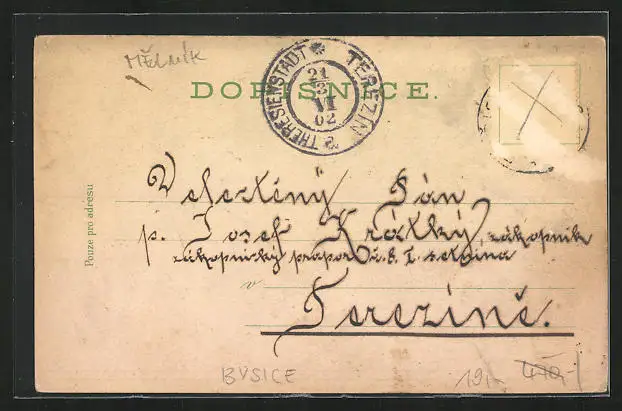 Mělník
THERESIENSTADT TEREZÍN
21
3
VI
02
DOPISNICE.
Pouze pro adresu
Veлectěný Pán
p. Josef Krátký, zákopník
zákopnický prapor č. 8. I. setnina
v
Terezíně.
BYSICE
19,-